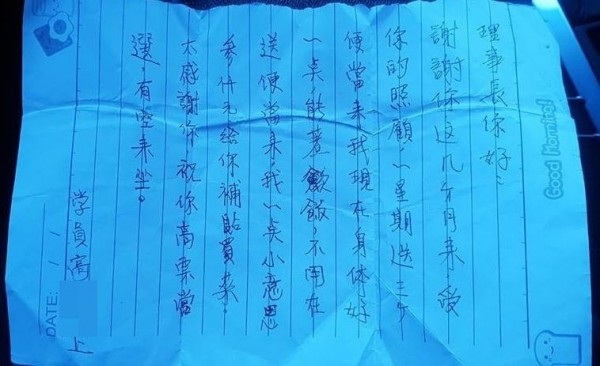 理事長你好：
謝謝你這几个月来，受
你的照顧，一星期送三个
便當来，我現在身体好
一点，能著飯，不用在
送便當来，我一点小意思
参仟元給你補貼買菜。
太感謝你，祝你高票當
選，有空来坐。
学員高
上
Good Morning!
DATE: / /